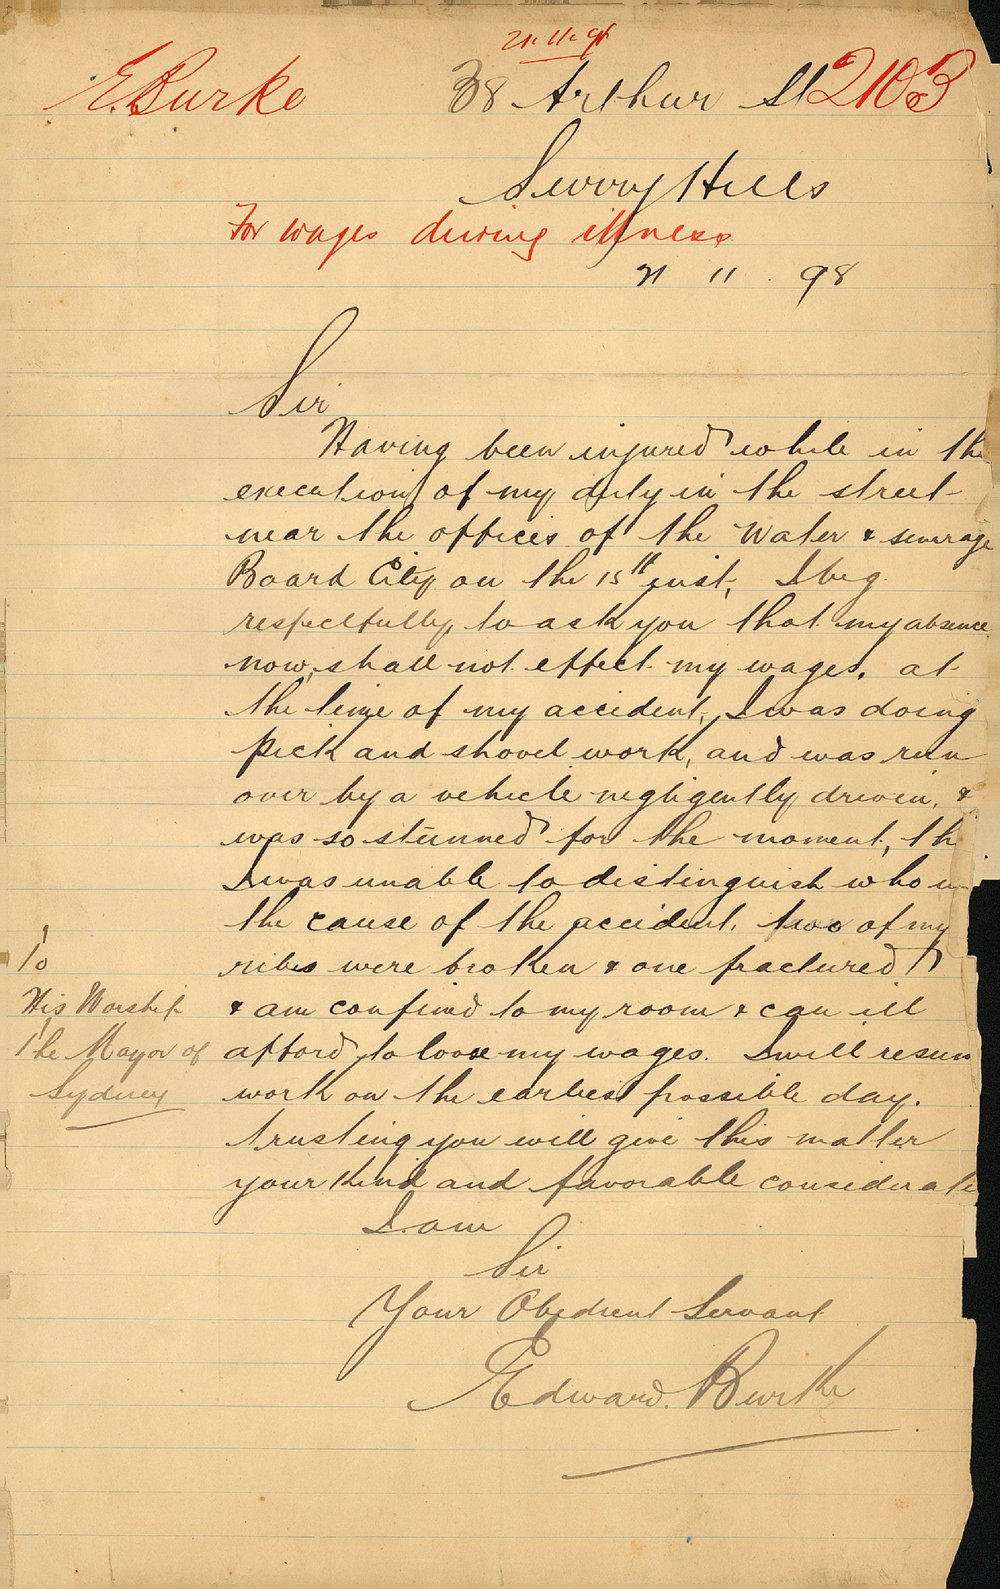 21.11.98
E. Burke
38 Arthur St 2103
Surry Hills
For wages during illness
21 11 . 98
Sir
Having been injured while in the
execution of my duty in the street
near the offices of the Water & sewerage
Board City on the 15th inst, I beg
respectfully, to ask you that my absence
now, shall not effect my wages. at
the time of my accident, I was doing
pick and shovel work, and was run
over by a vehicle negligently driven, &
was so stunned for the moment, th
I was unable to distinguish who w
the cause of the accident. two of my
ribs were broken & one fractured
& am confined to my room & can ill
afford to loose my wages. I will resum
work on the earliest possible day.
trusting you will give this matter
your kind and favorable considerati
I am
Sir
Your Obedient Servant
Edward. Burke
To
His Worship
The Mayor of
Sydney